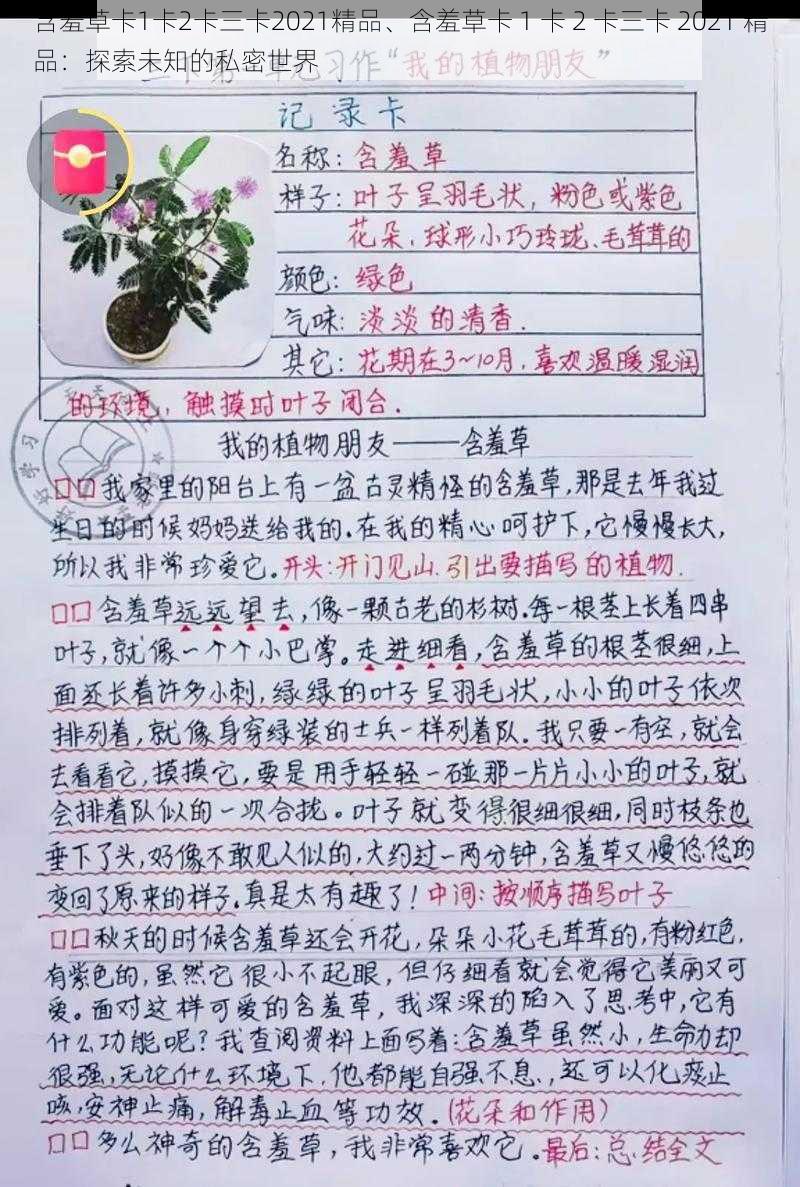 含羞草卡1卡2卡三卡2021精品、含羞草卡 1 卡 2 卡三卡 2021 精
品：探索未知的私密世界
习作“我的植物朋友”
记录卡
名称：含羞草
样子：叶子呈羽毛状，粉色或紫色
花朵，球形小巧玲珑、毛茸茸的
颜色：绿色
气味：淡淡的清香.
其它：花期在3~10月，喜欢温暖湿润
的环境，触摸时叶子闭合.
我的植物朋友——含羞草
□□我家里的阳台上有一盆古灵精怪的含羞草，那是去年我过
生日的时候妈妈送给我的.在我的精心呵护下，它慢慢长大，
所以我非常珍爱它.开头：开门见山.引出要描写的植物.
□□含羞草远远望去，像一颗古老的杉树.每一根茎上长着四串
叶子，就像一个个小巴掌。走进细看，含羞草的根茎很细，上
面还长着许多小刺，绿绿的叶子呈羽毛状，小小的叶子依次
排列着，就像身穿绿装的士兵一样列着队。我只要一有空，就会
去看看它，摸摸它，要是用手轻轻一碰那一片片小小的叶子，就
会排着队似的一次合拢。叶子就变得很细很细，同时枝条也
垂下了头，好像不敢见人似的，大约过一两分钟，含羞草又慢悠悠的
变回了原来的样子.真是太有趣了！中间：按顺序描写叶子
□□秋天的时候含羞草还会开花，朵朵小花毛茸茸的，有粉红色，
有紫色的，虽然它很小不起眼，但仔细看就会觉得它美丽又可
爱。面对这样可爱的含羞草，我深深的陷入了思考中，它有
什么功能呢？我查阅资料上面写着：含羞草虽然小，生命力却
很强，无论什么环境下，他都能自强不息，还可以化痰止
咳，安神止痛，解毒止血等功效.（花朵和作用）
□□多么神奇的含羞草，我非常喜欢它.最后：总结全文